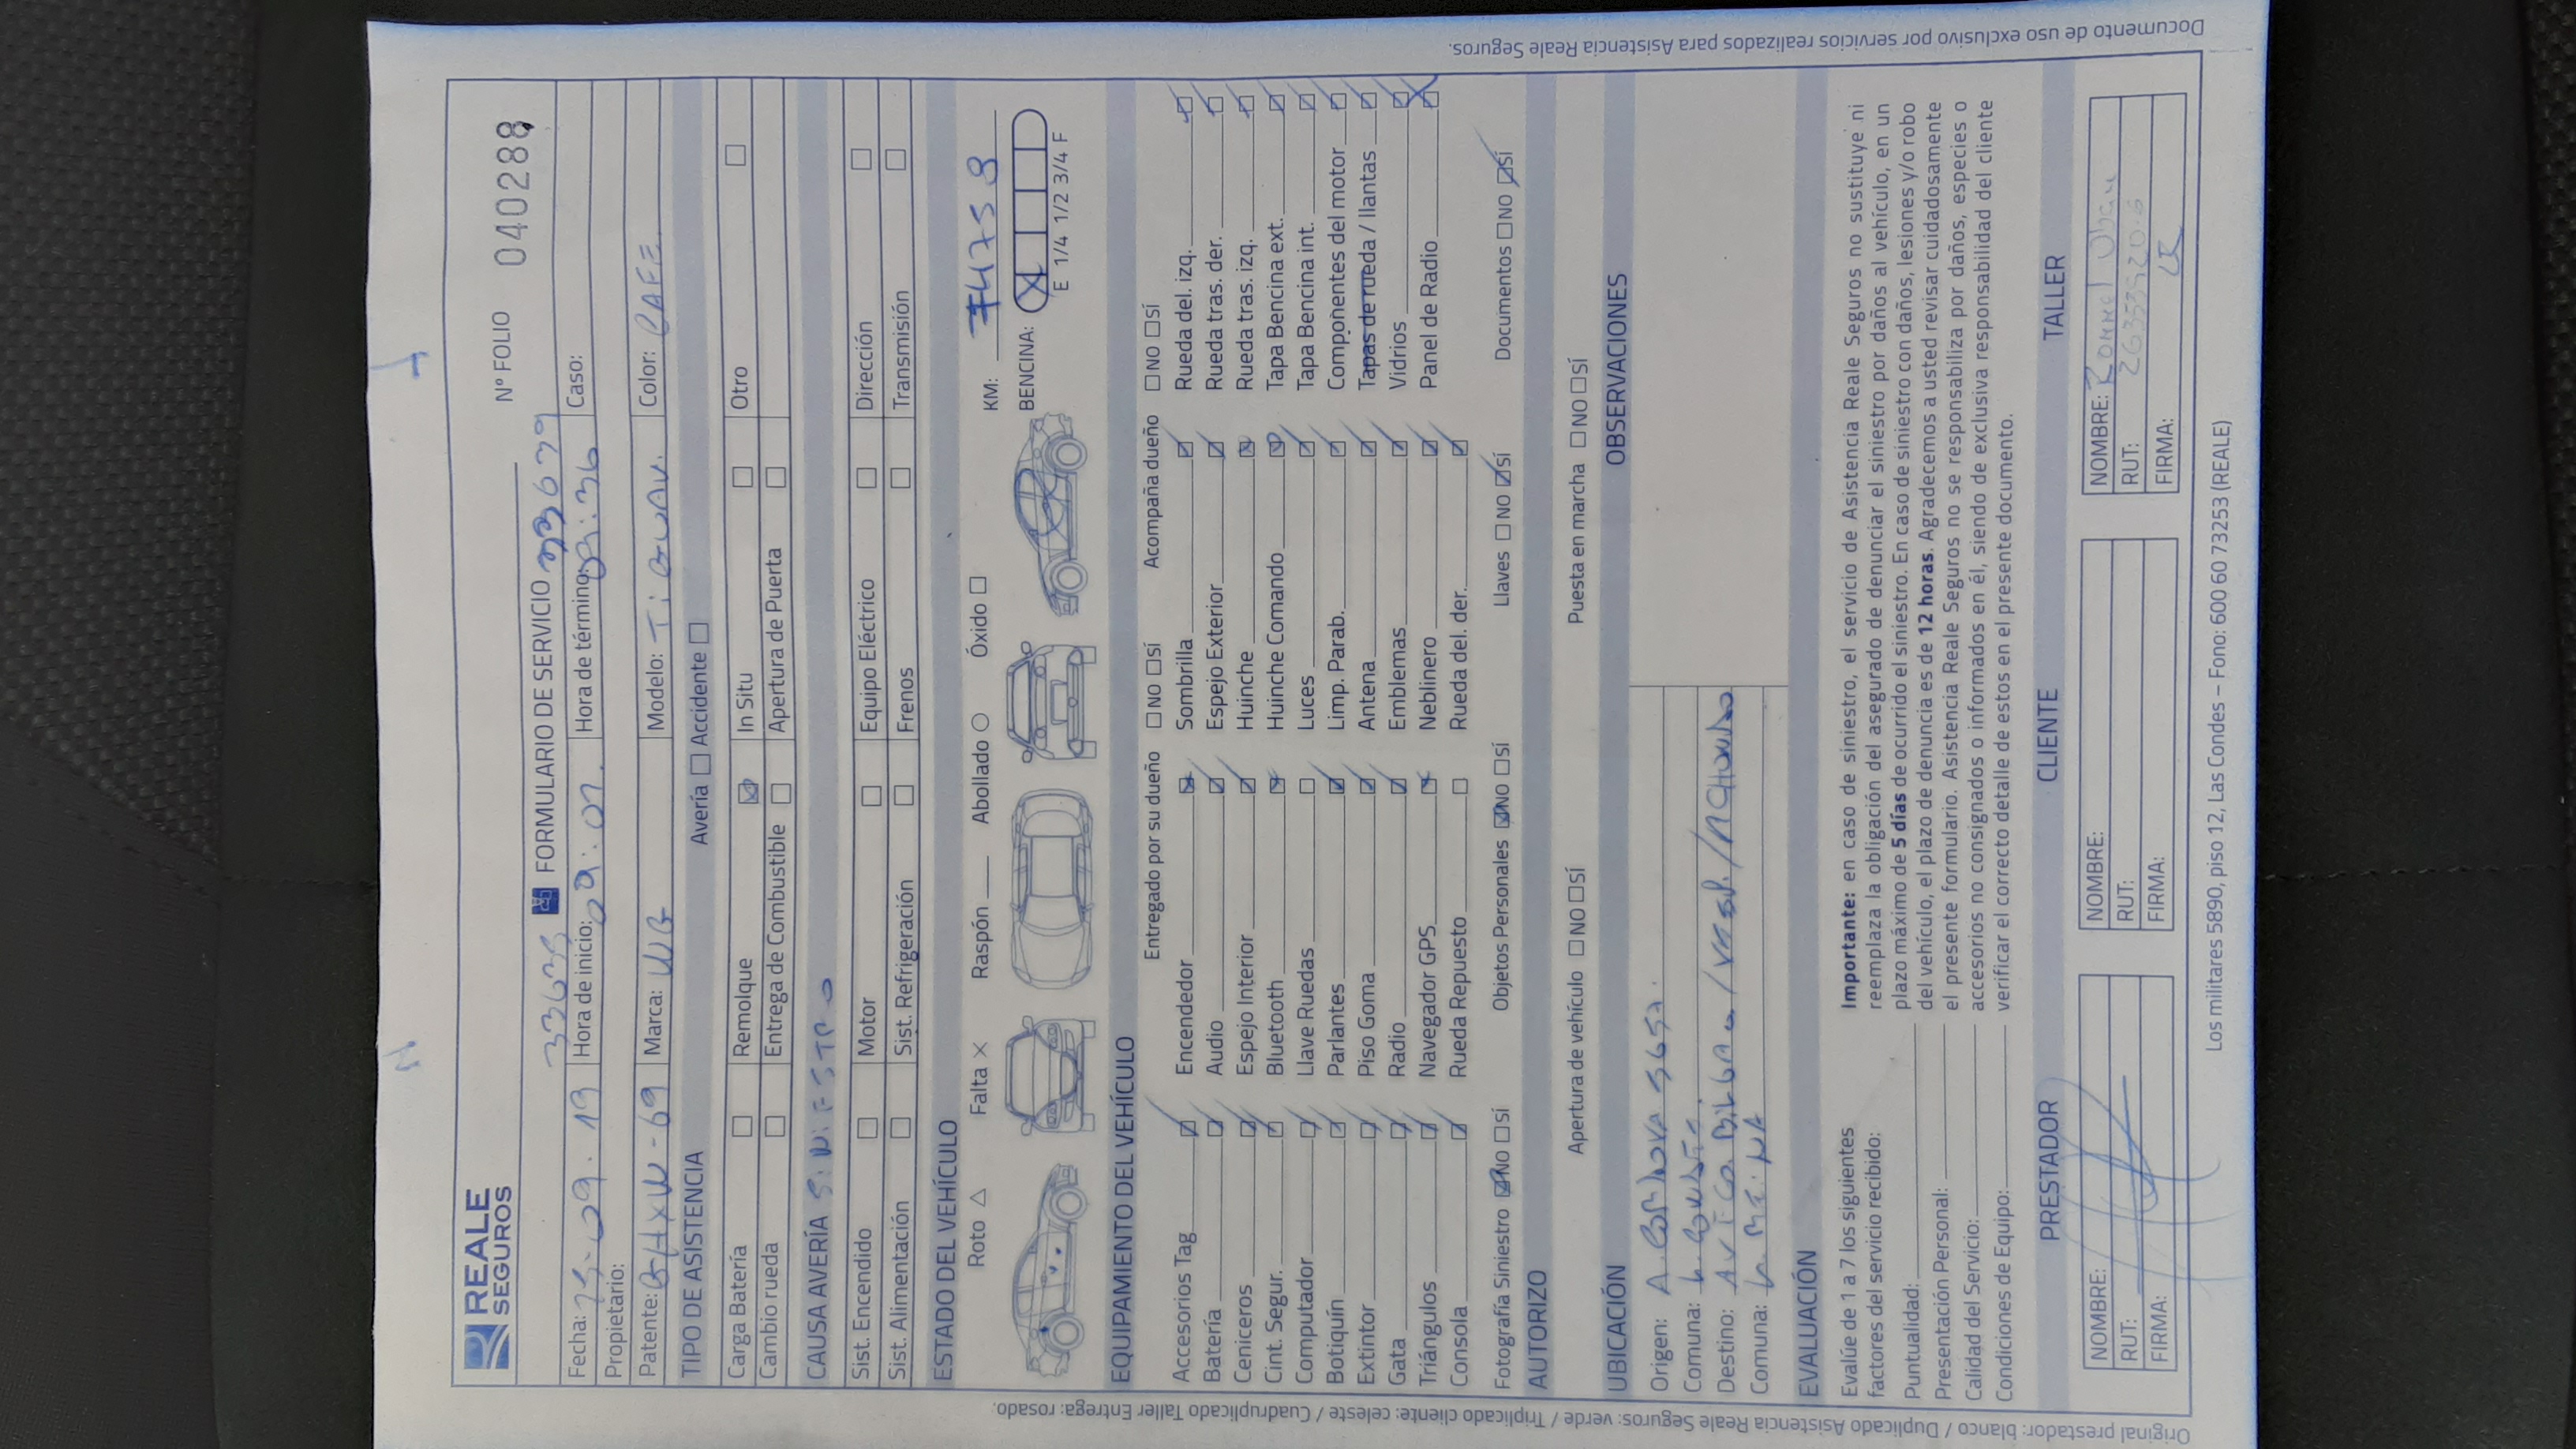 REALE
SEGUROS
Nº FOLIO 040288
33679
FORMULARIO DE SERVICIO
Fecha: Hora de inicio: 09:07. Hora de término: 09:36 Caso:
Propietario:
Patente: Marca: Modelo: Color: CAFE
TIPO DE ASISTENCIA Avería Accidente
Carga Batería Remolque In Situ Otro
Cambio rueda Entrega de Combustible Apertura de Puerta
CAUSA AVERÍA SiNiESTRO
Sist. Encendido Motor Equipo Eléctrico Dirección
Sist. Alimentación Sist. Refrigeración Frenos Transmisión
ESTADO DEL VEHÍCULO
Roto Falta Raspón Abollado Óxido KM:
BENCINA:
E 1/4 1/2 3/4 F
EQUIPAMIENTO DEL VEHÍCULO Entregado por su dueño NO SÍ Acompaña dueño NO SÍ
Accesorios Tag Encendedor Sombrilla Rueda del. izq.
Batería Audio Espejo Exterior Rueda tras. der.
Ceniceros Espejo Interior Huinche Rueda tras. izq.
Cint. Segur. Bluetooth Huinche Comando Tapa Bencina ext.
Computador Llave Ruedas Luces Tapa Bencina int.
Botiquín Parlantes Limp. Parab. Componentes del motor
Extintor Piso Goma Antena Tapas de rueda / llantas
Gata Radio Emblemas Vidrios
Triángulos Navegador GPS Neblinero Panel de Radio
Consola Rueda Repuesto Rueda del. der.
Fotografía Siniestro NO SÍ Objetos Personales NO SÍ Llaves NO SÍ Documentos NO SÍ
AUTORIZO
Apertura de vehículo NO SÍ Puesta en marcha NO SÍ
UBICACIÓN OBSERVACIONES
Origen:
Comuna:
Destino:
Comuna:
EVALUACIÓN
Evalúe de 1 a 7 los siguientes
factores del servicio recibido:
Puntualidad:
Presentación Personal:
Calidad del Servicio:
Condiciones de Equipo:
Importante: en caso de siniestro, el servicio de Asistencia Reale Seguros no sustituye ni
reemplaza la obligación del asegurado de denunciar el siniestro por daños al vehículo, en un
plazo máximo de 5 días de ocurrido el siniestro. En caso de siniestro con daños, lesiones y/o robo
del vehículo, el plazo de denuncia es de 12 horas. Agradecemos a usted revisar cuidadosamente
el presente formulario. Asistencia Reale Seguros no se responsabiliza por daños, especies o
accesorios no consignados o informados en él, siendo de exclusiva responsabilidad del cliente
verificar el correcto detalle de estos en el presente documento.
PRESTADOR CLIENTE TALLER
NOMBRE: NOMBRE: NOMBRE: Rommel
RUT: RUT: RUT:
FIRMA: FIRMA: FIRMA:
Los militares 5890, piso 12, Las Condes – Fono: 600 60 73253 (REALE)
Original prestador: blanco / Duplicado Asistencia Reale Seguros: verde / Triplicado cliente: celeste / Cuadruplicado Taller Entrega: rosado.
Documento de uso exclusivo por servicios realizados para Asistencia Reale Seguros.